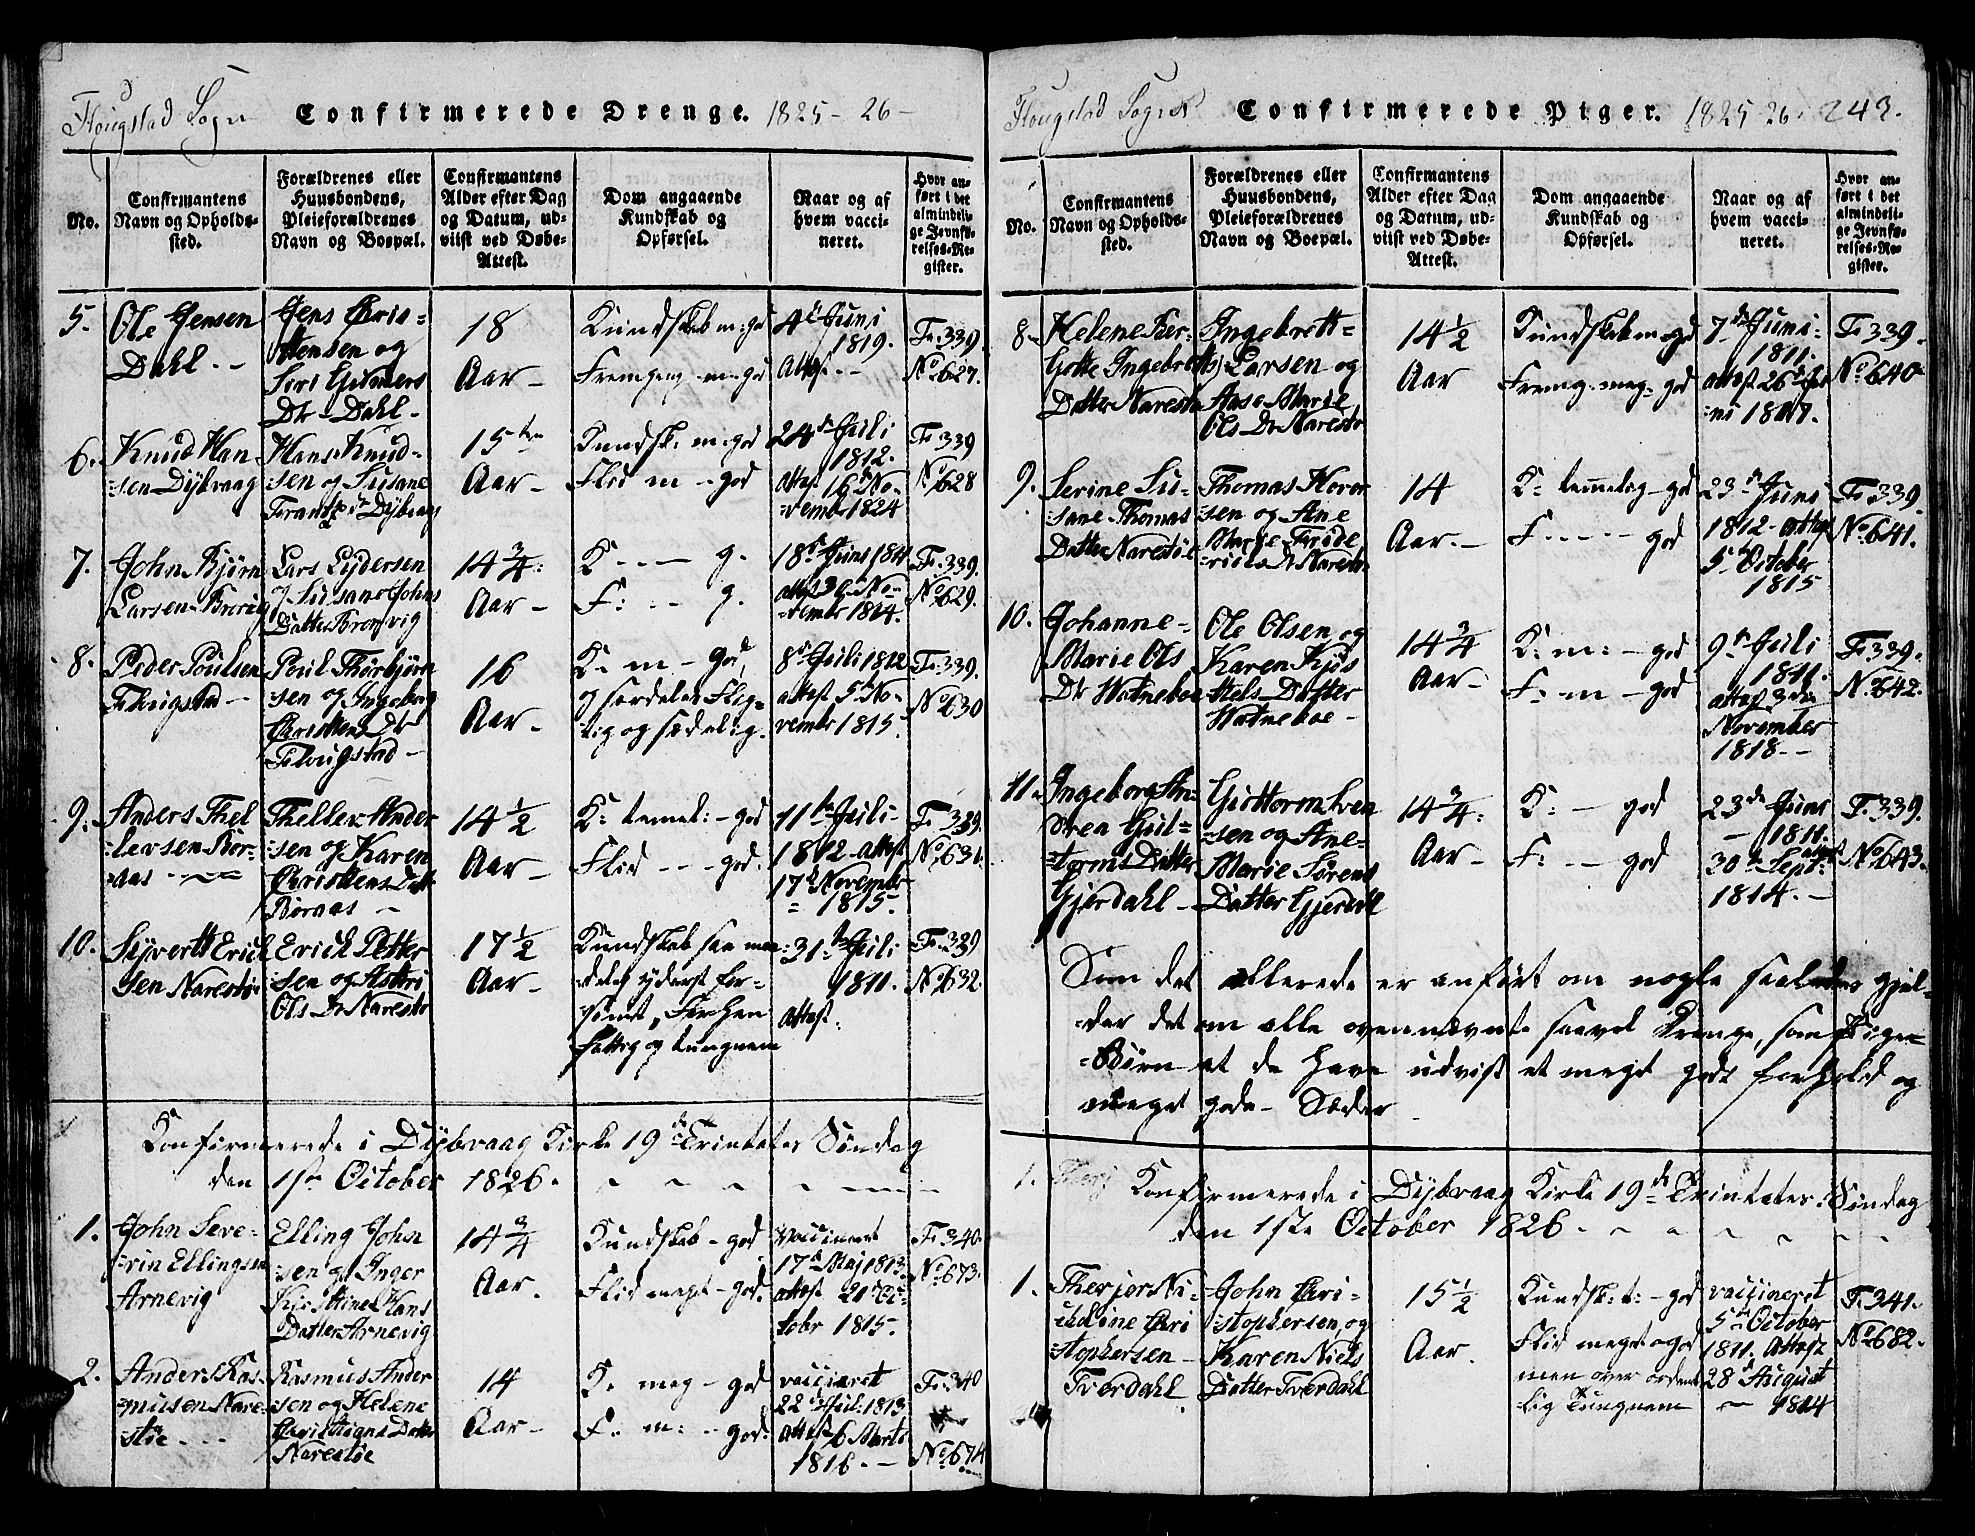 Flougstad Sogn Confirmerede Drenge. 1825-26-
No.
Confirmantens
Navn og Opholds-
sted.
Forældrenes eller
Huusbondens,
Pleieforældrenes
Navn og Boepæl.
Confirmantens
Alder efter Dag
og Datum, ud-
viist ved Døbe-
Attest.
Dom angaaende
Kundskab og
Opførsel.
Naar og af
hvem vacci-
neret.
Hvor an-
ført i det
almindeli-
ge Jevnfø-
relses-Re-
gister.
5.
Ole Jensen
Dahl --
Jens Chris-
stensen og
Siri
Dtr Dahl-
18
Aar-
Kundskab m: god
Fremgang m-god
4de Juni
1819.
Attest --
Fo: 339.
No 627.
6.
Knud Han-
sen Dybvaag
Hans Knud-
sen og Susane
Frants Dr Dybvaag
15ten
Aar-
Kundsk: m: god
Flid m - god
24de Juli
1812.
attest 16de No-
vembr 1824
Fo: 339
No 628
7.
John Bjørn
Larsen
Lars Lydersen
og Susane Johns
Datter
14 3/4:
Aar-
K. --- g.
F: -- g.
18de Juni 1811
attest No-
vembr 1814.
Fo: 339.
No 629.
8.
Peder Poulsen
Flougstad --
Poul Thorbjørn
sen og Ingeborg
Christens Dtr
Flougstad -
16
Aar-
K. m - god,
og særdeles flit-
tig og sædelig.
8de Juli 1812
attest 5te No-
vembr 1815.
Fo: 339.
No 630
9.
Anders Thel
levsen Bor-
aas
Thellev Ander
sen og Karen
Christens Datt
Boraas -
14 1/2
Aar-
K: temel: - god
Flid --- god.
11te Juli-
1812 attest
17de November
= 1815.
Fo: 339.
No 631.
10.
Syvertt Erich
sen Narestøe
Erich Petter
sen og Astri
Ols Dr Narestø
17 1/2
Aar-
Kundskab saa maa-
delig yderst for-
sømt,
fattig og tungnem
31te Juli
1811.
Attest:
Fo: 339
No 632.
Confirmerede i Dybvaag Kirke 19de Trinitatis Søndag
den 1ste October 1826.
1.
John Seve-
rin Ellingsen
Arnevig
Elling John
sen og Inger
Kirstine Hans
Datter Arnevig
14 3/4
Aar.
Kundskab - god
Flid meget - god.
vaccineret
17de Maj 1813.
attest 21 Oc-
tobr 1815.
Fo: 340.
No 673.
2.
Anders Ras-
musen Nare-
støe ---
Rasmus Ander
sen og Helene
Datter
Narestøe
14
Aar-
K. meg - god
F. m: -- god.
vaccineret
22de Juli 1813
attest 6 Marts
1816. -
Fo: 340
No 674
Flougstad Sogn Confirmerede Piger. 1825-26. 243.
No.
Confirmantens
Navn og Opholds-
sted.
Forældrenes eller
Huusbondens,
Pleieforældrenes
Navn og Boepæl.
Confirmantens
Alder efter Dag
og Datum, ud-
viist ved Døbe-
Attest.
Dom angaaende
Kundskab og
Opførsel.
Naar og af
hvem vacci-
neret.
Hvor an-
ført i det
almindeli-
ge Jevnfø-
relses-Re-
gister.
8.
Helene
Gotte Ingebretts
Datter Narestø
Ingebrett
Larsen og
Aase Marie
Ols Dr Narestø
14 1/2
Aar
Kundskab m-god
Fremg: meg: god
7de Juni
1811.
attest 26de
1817.
Fo: 339.
No 640
9.
Serine Su-
sane Thomas
Datter Narestøe
Thomas Halvor
sen og Ane
Marie Fride
richs Dr Narestø
14
Aar.-
K: temmelig - god
F. ---- god
23de Juni
1812 - attest
5te October
1815
Fo: 339.
No 641.
10.
Johanne
Marie Ols
Dtr Watneboe
Ole Olsen og
Karen Kjøs
stels Datter
Watneboe -
14 3/4
Aar-
K: m: - god
F: m - god
9de Juli
1811.
attest 3die
November
1818 --
Fo: 339.
No 642.
11.
Ingeborg An-
drea Gut-
torms Datter
Gjerdahl -
Guttorm Iven
sen og Ane
Marie Sørens
Datter Gjerdahl
14 3/4:
Aar-
K: - god
F: -- god
23de Juni
- 1811.
attest
30te Sept:
1814. -
Fo: 339.
No 643.
Som det allerede er anført om nogle saaledes gjel-
der det om alle ovennævnte saavel Drenge, som Pige-
Børn at de have udvist et meget godt forhold og
meget gode Sæder
1. Therj
Confirmerede i Dybvaag Kirke 19de Trinitatis Søndag
den 1ste October 1826.
1.
Therjer Ni-
coline Chri
stophersen
Tverdahl
John Chri-
stophersen, og
Karen Niels
Datter Tverdahl
15 1/2
Aar.
Kundsk: t: - god
Flid meget god
men over ordent
lig Tungnem
vaccineret
5te October
1811. Attest
28de August
- 1814
Fo: 341.
No 682.